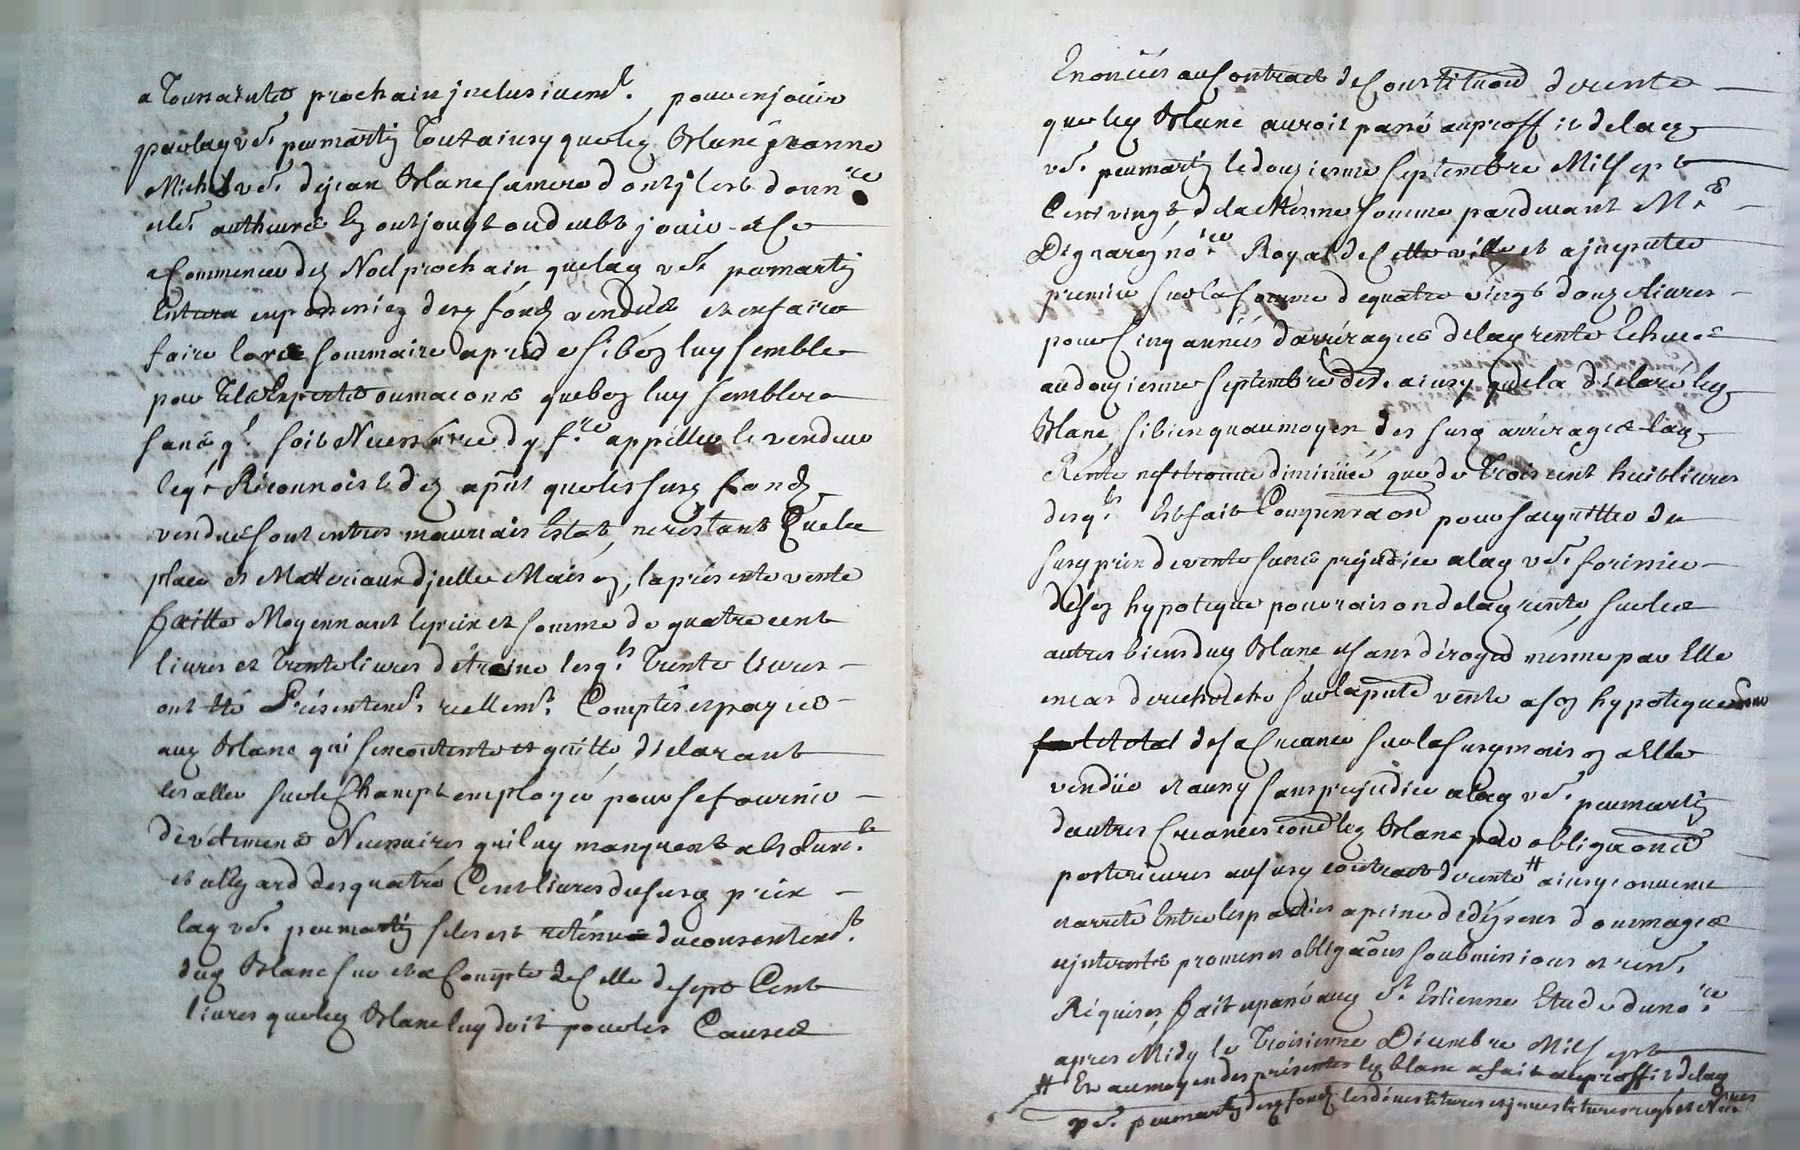 a Toussaintes prochain jnclusivem.t pour enjouir
par lad. v.e peumartin Tout ainsy que led. Blanc jeanne
Michel v.e de jean Blanc sa mere dont jl est donn.re
et les autheurs en ont jouy et ou deubt jouir et Ce
a Commencer dez Noel prochain que lad. v.e peumartin
Entrera en possession desd. fonds vendues et en faire
faire la vue sommaire aprés si bon luy semble
par Tels Experts ou macons que bon luy semblera
sans q.l soit Necessaire d'y f.re appeller le vendeur
leq.l Reconnoist des apñt que les susd. fonds
vendues sont en tres mauvais Estat, ne restant Que la
place et Materiaux d'jcelle Maison, la présente vente
faitte Moyennant le prix et somme de quatre cent
livres et trente livres d'étraine lesq.ls trente livres
ont été Présentem.t réellem.t Comptés et payées
aud. Blanc qui s'en contente et quitte, déclarant
les aller sur le Champt employer pour se fournir
de vétemens Necessaires qui luy manquent absolum.t
et a l'égard des quatre Cent livres du susd. prix
lad. v.e peumartin s'les est retenues du consentem.t
dud. Blanc sur et a Compte de Celle de sept Cent
livres que led. Blanc luy doit pour les Causes
Enoncées au Contract de Constituon de rente
que led. Blanc auroit passé au proffit de lad.
v.e peumartin le douzieme septembre Mil sept
Cent vingt, de la méme somme pardevant M.e
Dignaron no.re Royal de Cette ville et a jmputer
premier sur la somme de quatre vingt douze livres
pour Cinq années d'arrérages de lad. rente Echues
au douzieme septembre der. ainsy que la déclaré led.
Blanc, si bien qu'au moyen des susd. arrérages lad.
Rente n'est trouvée diminuée que de trois cent huit livres
desq.ls Est fait Compensaon pour s'acquitter du
susd. prix de vente sans prejudice a lad. v.e
de son hypoteque pour raison de lad. rente, sur les
autres biens dud. Blanc et sans déroger méme par Elle
en cas de recherche sur la pñte vente a son hypoteque
de sa Creance sur la susd. maison a Elle
vendüe et aussy sans prejudice a lad. v.e peumartin
d'autres Creances cond. led. Blanc par obligaons
posterieures au susd. contract de rente # ainsy convenu
et arreté Entre les parties a peine de dépens dommages
et jnterests promesses obligãons soubmissions et ren.
Réquises, fait et passé aud. S.t Estienne Etude du no.re
apres Midy le Troisieme Décembre Mil sept
# Et au moyen des présentes led. blanc a fait au proffit de lad.
v.e peumartin desd. fonds les dévestitures et jnvestitures